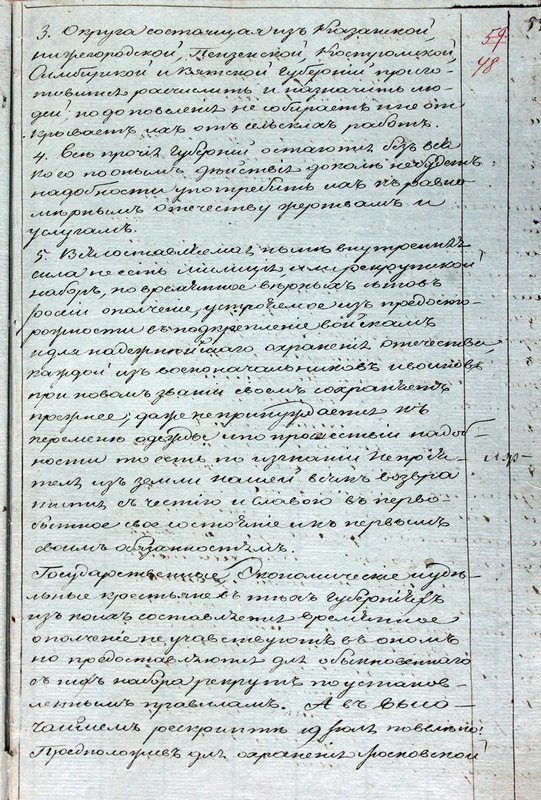 3. Округа состоящая изъ Казанской,
нижегородской, Пензенской, Костромской,
Симбирской и Вятской Губерній, приго-
товится расчислить и назначить лю-
дей, но до повеленія не собираетъ и не от-
крываетъ ихъ отъ сельскихъ работъ.
4. Все прочія Губерніи остаются безъ вся-
кого по онымъ дѣйствія доколѣ не будетъ
надобности употребить ихъ къ равно-
мѣрнымъ отечеству жертвамъ и
услугамъ.
5. Вся составляемая нынѣ внутренняя
сила не есть милиція или рекрутской
наборъ, но временное верныхъ сыновъ
росіи ополченіе, устрояемое изъ предосто-
рожности въ подкрепленіе войскамъ
и для надежнѣйшаго охраненія отечества,
каждой изъ военоначальниковъ и воиновъ
при новомъ званіи своемъ сохраняетъ
прежнее; даже не принуждается къ
перемене одежды, и по прошествіи надоб-
ности то есть по изгнаніи непрія-
теля изъ земли нашей всякъ возвра-
тится съ честію и славою въ перво-
бытное свое состояніе и къ первымъ
своимъ обязанностямъ.
Государственные, Экономическіе и удѣ-
льные крестьяне въ тѣхъ губерніяхъ
изъ коихъ составляется временное
ополченіе не участвуютъ въ ономъ
но предоставляются для обыкновеннаго
съ нихъ набора рекрутъ по установ-
леннымъ правиламъ. А въ высо-
чайшемъ рескриптѣ 19 Іюля повелено:
Предположивъ для охраненія московской
59
48